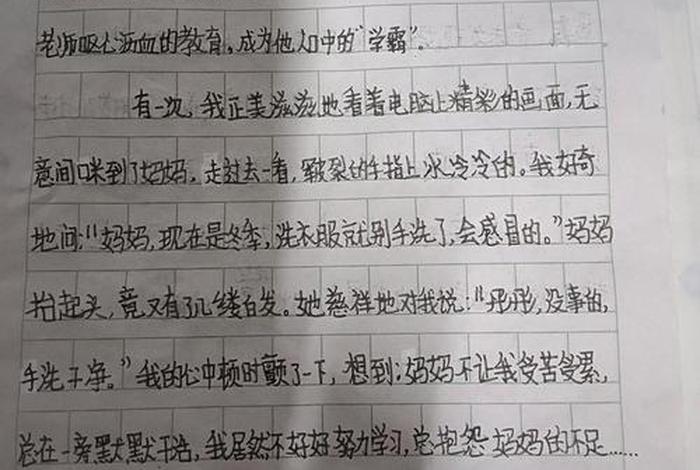 老师呕心沥血的教育,成为他人口中的“学霸”.
有一次,我正美滋滋地看着电脑上精彩的画面,无
意间咪到了妈妈,走过去一看,皲裂的手指上冰冷冷的。我好奇
地问:“妈妈,现在是冬季,洗衣服就别手洗了,会感冒的。”妈妈
抬起头,竟又有了几缕白发。她慈祥地对我说:“彤彤,没事的,
手洗干净。”我的心中顿时颤了一下,想到:妈妈不让我受苦受累,
总在一旁默默干活,我居然不好好努力学习,总抱怨妈妈的不足……